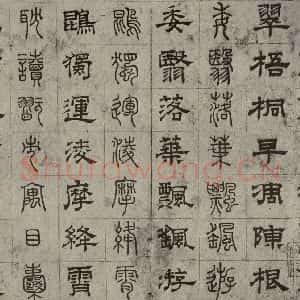 翠梧桐早凋陳根
委翳落葉飄颻遊
委翳落葉飄颻游
鵾獨運凌摩絳霄
鵾獨運凌摩絳霄
耽讀翫市寓目囊
Shufawang.CN